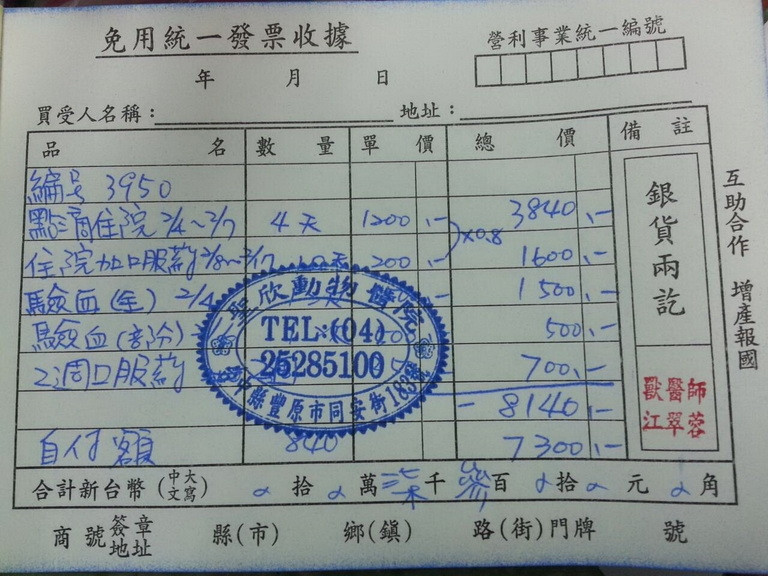 免用統一發票收據
營利事業統一編號
年 月 日
買受人名稱： 地址：
品 名 數 量 單 價 總 價 備 註
編号 3950
點滴住院 2/4~2/7 4天 1200 .- 3840 .-
×0.8
住院加口服葯 2/8~2/17 200 .- 1600 .-
驗血(全) 2/4 1500 .-
驗血(部份) 500 .-
2週口服葯 700 .-
- 8140 .-
自付額 840 7300 .-
聖欣動物醫院
TEL:(04)
25285100
中縣豐原市同安街183號
銀貨兩訖
獸醫師
江翠蓉
互助合作 增產報國
合計新台幣(中文大寫) 拾 萬 柒千 參百 拾 元 角
商號簽章地址 縣(市) 鄉(鎮) 路(街)門牌 號